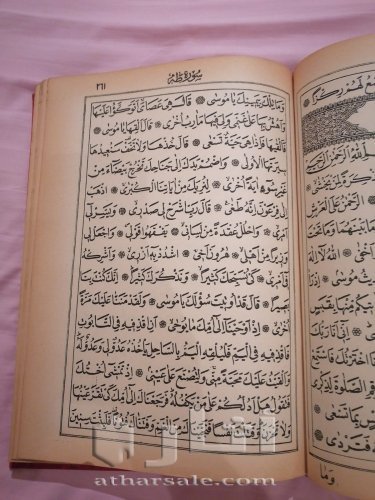 ٢٦١ سُورَةُ طٰهٰ
وَمَا تِلْكَ بِيَمِينِكَ يَا مُوسٰى ۞ قَالَ هِيَ عَصَايَ أَتَوَكَّؤُا عَلَيْهَا
وَأَهُشُّ بِهَا عَلٰى غَنَمِي وَلِيَ فِيهَا مَآرِبُ أُخْرٰى ۞ قَالَ أَلْقِهَا يَا مُوسٰى ۞
فَأَلْقٰيهَا فَإِذَا هِيَ حَيَّةٌ تَسْعٰى ۞ قَالَ خُذْهَا وَلَا تَخَفْ سَنُعِيدُهَا
سِيرَتَهَا الْأُولٰى ۞ وَاضْمُمْ يَدَكَ إِلٰى جَنَاحِكَ تَخْرُجْ بَيْضَاءَ مِنْ
غَيْرِ سُوءٍ آيَةً أُخْرٰى ۞ لِنُرِيَكَ مِنْ آيَاتِنَا الْكُبْرٰى ۞ اذْهَبْ
إِلٰى فِرْعَوْنَ إِنَّهُ طَغٰى ۞ قَالَ رَبِّ اشْرَحْ لِي صَدْرِي ۞ وَيَسِّرْ لِي
أَمْرِي ۞ وَاحْلُلْ عُقْدَةً مِنْ لِسَانِي ۞ يَفْقَهُوا قَوْلِي ۞ وَاجْعَلْ لِي
وَزِيرًا مِنْ أَهْلِي ۞ هٰرُونَ أَخِي ۞ اشْدُدْ بِهِ أَزْرِي ۞ وَأَشْرِكْهُ
فِي أَمْرِي ۞ كَيْ نُسَبِّحَكَ كَثِيرًا ۞ وَنَذْكُرَكَ كَثِيرًا ۞ إِنَّكَ كُنْتَ بِنَا
بَصِيرًا ۞ قَالَ قَدْ أُوتِيتَ سُؤْلَكَ يَا مُوسٰى ۞ وَلَقَدْ مَنَنَّا عَلَيْكَ مَرَّةً
أُخْرٰى ۞ إِذْ أَوْحَيْنَا إِلٰى أُمِّكَ مَا يُوحٰى ۞ أَنِ اقْذِفِيهِ فِي التَّابُوتِ
فَاقْذِفِيهِ فِي الْيَمِّ فَلْيُلْقِهِ الْيَمُّ بِالسَّاحِلِ يَأْخُذْهُ عَدُوٌّ لِي وَعَدُوٌّ لَهُ
وَأَلْقَيْتُ عَلَيْكَ مَحَبَّةً مِنِّي وَلِتُصْنَعَ عَلٰى عَيْنِي ۞ إِذْ تَمْشِي أُخْتُكَ
فَتَقُولُ هَلْ أَدُلُّكُمْ عَلٰى مَنْ يَكْفُلُهُ فَرَجَعْنَاكَ إِلٰى أُمِّكَ كَيْ تَقَرَّ عَيْنُهَا
وَلَا تَحْزَنَ وَقَتَلْتَ نَفْسًا فَنَجَّيْنَاكَ مِنَ الْغَمِّ وَفَتَنَّاكَ فُتُونًا فَلَبِثْتَ سِنِينَ
وَمَا
atharsale.com